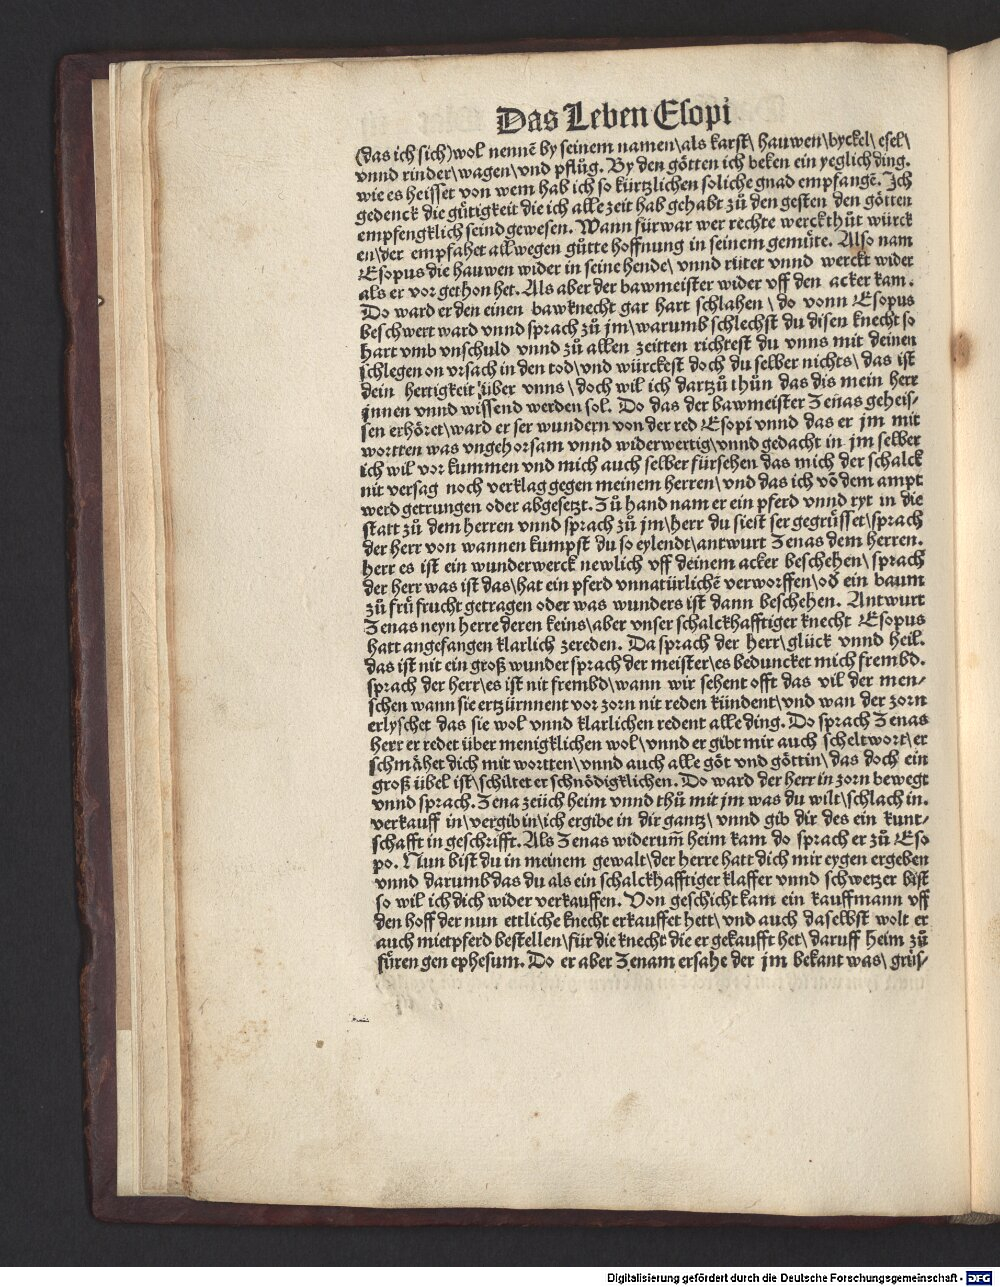 Das Leben Esopi
(das ich sich)wol nennē by seinem namen\als karst\ hauwen\byckel\ esel\
vnnd rinder\wagen\vnd pflůg. By den götten ich beken ein yeglich ding.
wie es heisset von wem hab ich so kürtzlichen soliche gnad empfangē. Ich
gedenck die gůtigkeit die ich alle zeit hab gehabt zů den gesten den götten
empfengklich seind gewesen. Wann fürwar wer rechte werck thůt würck
en\der empfahet allwegen gůtte hoffnung in seinem gemůte. Also nam
Esopus die hauwen wider in seine hende\ vnnd rütet vnnd werckt wider
als er vor gethon het. Als aber der bawmeister wider vff den acker kam.
Do ward er den einen bawknecht gar hart schlahen \ do vonn Esopus
beschwert ward vnnd sprach zů jm\warumb schlechst du disen knecht so
hart vmb vnschuld vnnd zů allen zeitten richtest du vnns mit deinen
schlegen on vrsach in den tod\vnd würckest doch du selber nichts\ das ist
dein hertigkeit über vnns \doch wil ich dartzů thůn das dis mein herr
jnnen vnnd wissend werden sol. Do das der bawmeister Zenas geheis/
sen erhöret\ward er ser wundern von der red Esopi vnnd das er jm mit
wortten was vngehorsam vnnd widerwertig\vnnd gedacht in jm selber
ich wil vor kummen vnd mich auch selber fürsehen das mich der schalck
nit versag noch verklag gegen meinem herren\vnd das ich vō dem ampt
werd getrungen oder abgesetzt. Zů hand nam er ein pferd vnnd ryt in die
statt zů dem herren vnnd sprach zů jm\herr du siest ser gegrůsset\sprach
der herr von wannen kumpst du so eylendt\antwurt Zenas dem herren.
herr es ist ein wunderwerck newlich vff deinem acker beschehen\ sprach
der herr was ist das\hat ein pferd vnnatürlichē verworffen\od̄ ein baum
zů frů frucht getragen oder was wunders ist dann beschehen. Antwurt
Zenas neyn herre deren keins\aber vnser schalckhafftiger knecht Esopus
hatt angefangen klarlich zereden. Da sprach der herr\glück vnnd heil.
das ist nit ein groß wunder sprach der meister\es beduncket mich frembd.
sprach der herr\es ist nit frembd\wann wir sehent offt das vil der men/
schen wann sie ertzürnnent vor zorn nit reden kündent\vnd wan der zorn
erlyschet das sie wol vnnd klarlichen redent alle ding. Do sprach Zenas
herr er redet über menigklichen wol\vnnd er gibt mir auch scheltwort\er
schmåhet dich mit wortten\vnnd auch alle göt vnd göttin\das doch ein
groß übel ist\schiltet er schnödigklichen. Do ward der herr in zorn bewegt
vnnd sprach. Zena zeüch heim vnnd thů mit jm was du wilt\schlach in.
verkauff in\vergib in\ich ergibe in dir gantz\ vnnd gib dir des ein kunt/
schafft in geschrifft. Als Zenas widerum̄ heim kam do sprach er zů Eso
po. Nun bist du in meinem gewalt\der herre hatt dich mir eygen ergeben
vnnd darumb das du als ein schalckhafftiger klaffer vnnd schwetzer bist
so wil ich dich wider verkauffen. Von geschicht kam ein kauffmann vff
den hoff der nun ettliche knecht erkauffet hett\vnd auch daselbst wolt er
auch mietpferd bestellen\für die knecht die er gekaufft het\daruff heim zů
fůren gen ephesum. Do er aber Zenam ersahe der jm bekant was\ grůs/
Digitalisierung gefördert durch die Deutsche Forschungsgemeinschaft - DFG